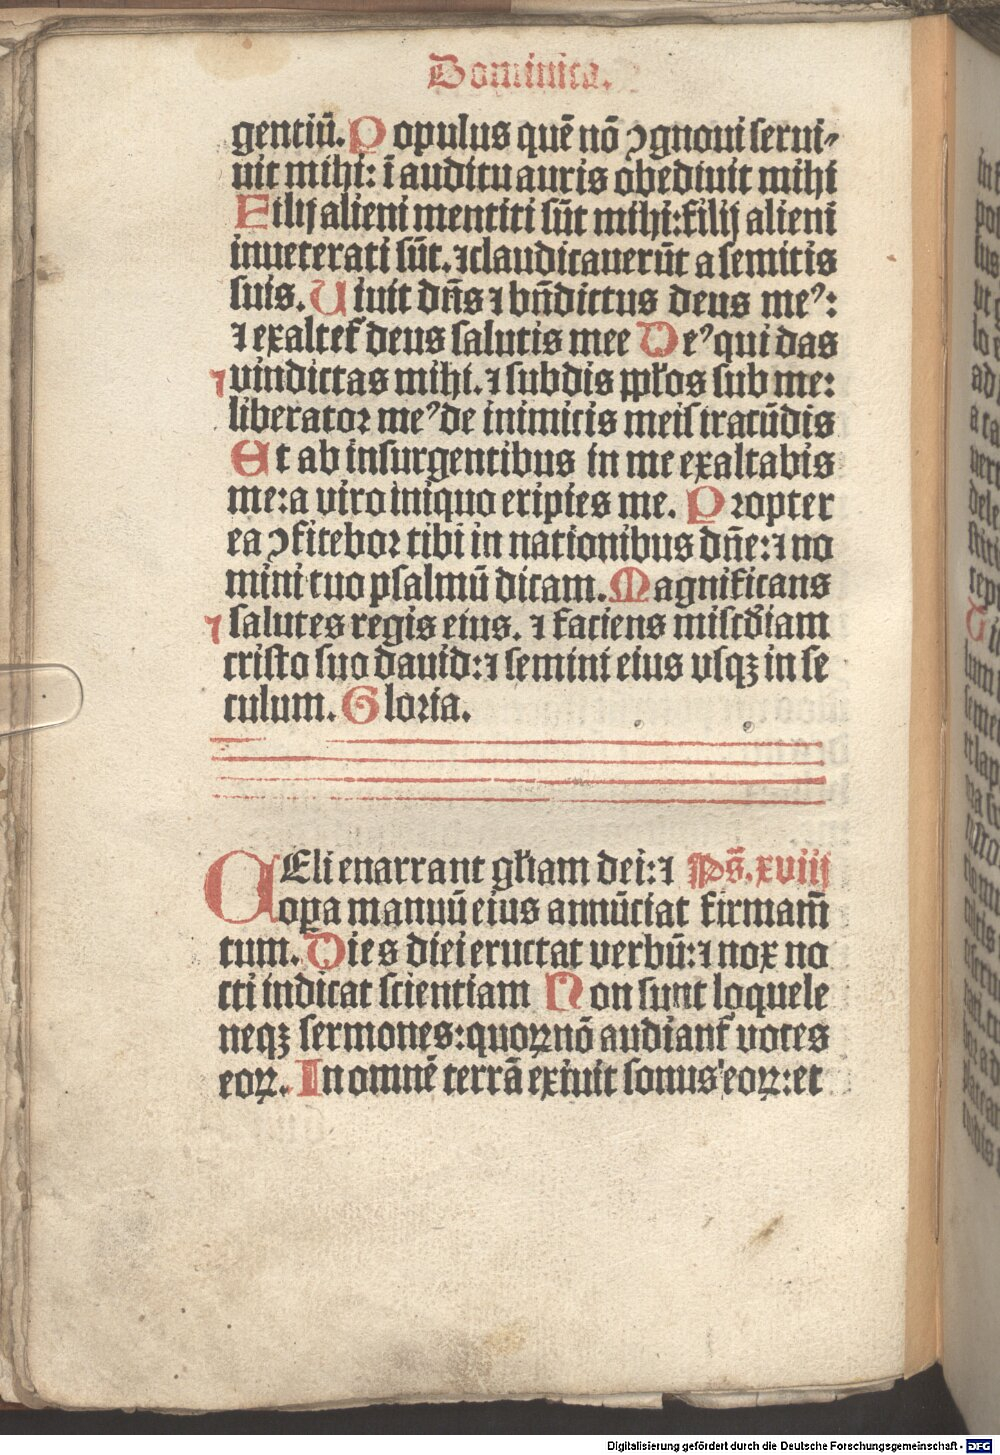 Dominica.
gentiū. Populus quē nō ꝯgnoui serui⸗
uit mihi: ī auditu auris obediuit mihi
Filij alieni mentiti sūt mihi: filij alieni
inueterati sūt. ⁊ claudicauerūt a semitis
suis. Uiuit dn̄s ⁊ bn̄dictus deus me⁹:
⁊ exaltet᷑ deus salutis mee De⁹ qui das
vindictas mihi. ⁊ subdis pp̄los sub me:
liberator me⁹ de inimicis meis iracūdis
Et ab insurgentibus in me exaltabis
me: a viro iniquo eripies me. Propter
ea ꝯfitebor tibi in nationibus dn̄e: ⁊ no
mini tuo psalmū dicam. Magnificans
salutes regis eius. ⁊ faciens misc̄diam
cristo suo dauid: ⁊ semini eius vsqꝫ in se
culum. Gloria.
CEli enarrant gl̄iam dei: ⁊ Ps̄. xviij
oꝑa manuū eius annūciat firmam̄
tum. Dies diei eructat verbū: ⁊ nox no
cti indicat scientiam Non sunt loquele
neqꝫ sermones: quoꝝ nō audiant᷑ voces
eoꝝ. In omnē terrā exiuit sonus eoꝝ: et
Digitalisierung gefördert durch die Deutsche Forschungsgemeinschaft - DFG